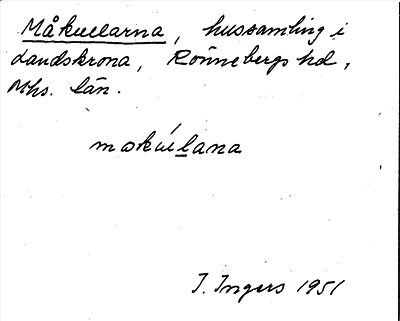 Måkullarna, hussamling i
Landskrona, Rönnebergs hd,
Mhs. län.
makúlana
I. Ingers 1951